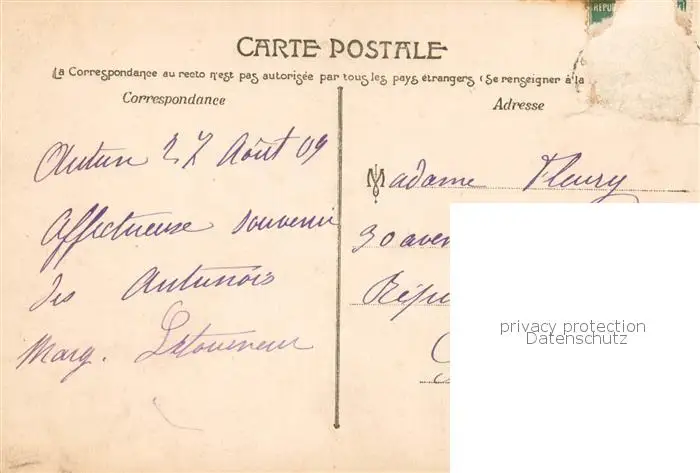 RÉPUB
CARTE POSTALE
La Correspondance au recto n'est pas autorisée par tous les pays étrangers (Se renseigner à la
Correspondance
Adresse
Autun 27 Août 09
Affectueux souvenir
des Autunois
Marg. Letourneur
Madame Fleury
30 aven
Répu
privacy protection
Datenschutz